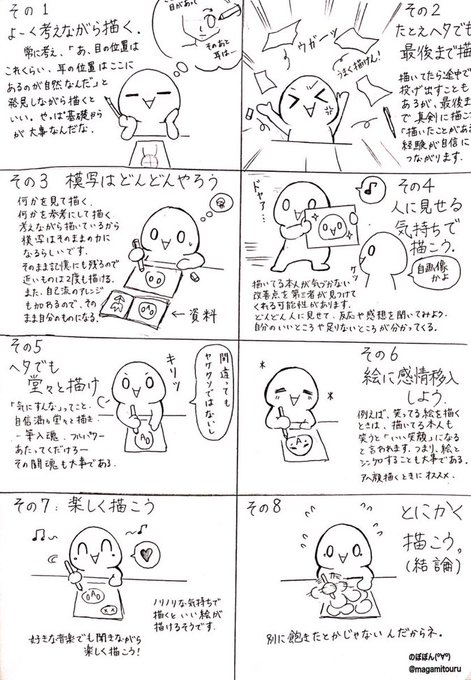 その1
よーく考えながら描く.
常に考え、「あ、目の位置は
これくらい、耳の位置はここに
あるのが自然なんだ」と
発見しながら描くと
いい。やっぱ基礎からが
大事なんだな.
目があって
そのあと
耳は…
その2
たとえヘタでも
最後まで描
ウガーッ
うまく描けん!
描いてたら途中で
投げ出すことも
あるが、最後ま
で真剣に描こ
「描いたことがあ
経験が自信に
つながります.
その3 模写はどんどんやろう
何かを見て描く.
何かを参考にして描く.
考えながら描いているから
模写はそのまま力に
なるらしいです.
そのまま記憶にも残るので
近いものは2度も描ける.
また、自己流のアレンジ
もかわるので、その
まま自分のものになる.
←資料
その4
人に見せる
気持ちで
描こう.
ドャァ…
自画像
かよ
描いてる本人が気づかない
改善点を第三者が見つけて
くれる可能性があります.
どんどん人に見せて、反応や感想を聞いてみよう.
自分のいいところや足りないところが分かってくる.
その5
ヘタでも
堂々と描け
キリッ
間違っても
ヤケクソではないし
「気にすんな」ってこと.
自信満々堂々と描き.
一筆入魂、フルパワー
あたってくだけろー
その闘魂も大事である.
その6
絵に感情移入
しよう.
例えば、笑ってる絵を描く
ときは、描いてる本人も
笑うと「いい笑顔」になる
と言われます.つまり、絵と
シンクロすることも大事である.
アヘ顔描くときにオススメ.
その7: 楽しく描こう
ノリノリな気持ちで
描くといい絵が
描けるそうです.
好きな音楽でも聞きながら
楽しく描こう!
その8
とにかく
描こう。
(結論)
別に飽きたとかじゃないんだからネ.
のぼぼん(°∀°)
@magamitouru